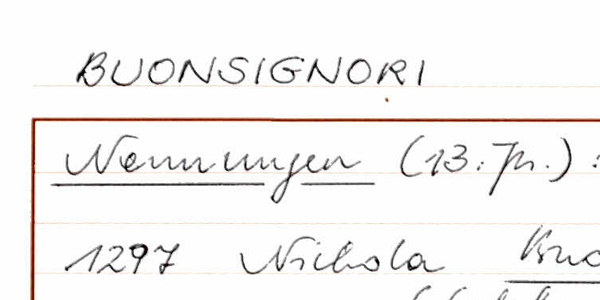 BUONSIGNORI
Nennungen (13. Jh.) :
1297 Nichola